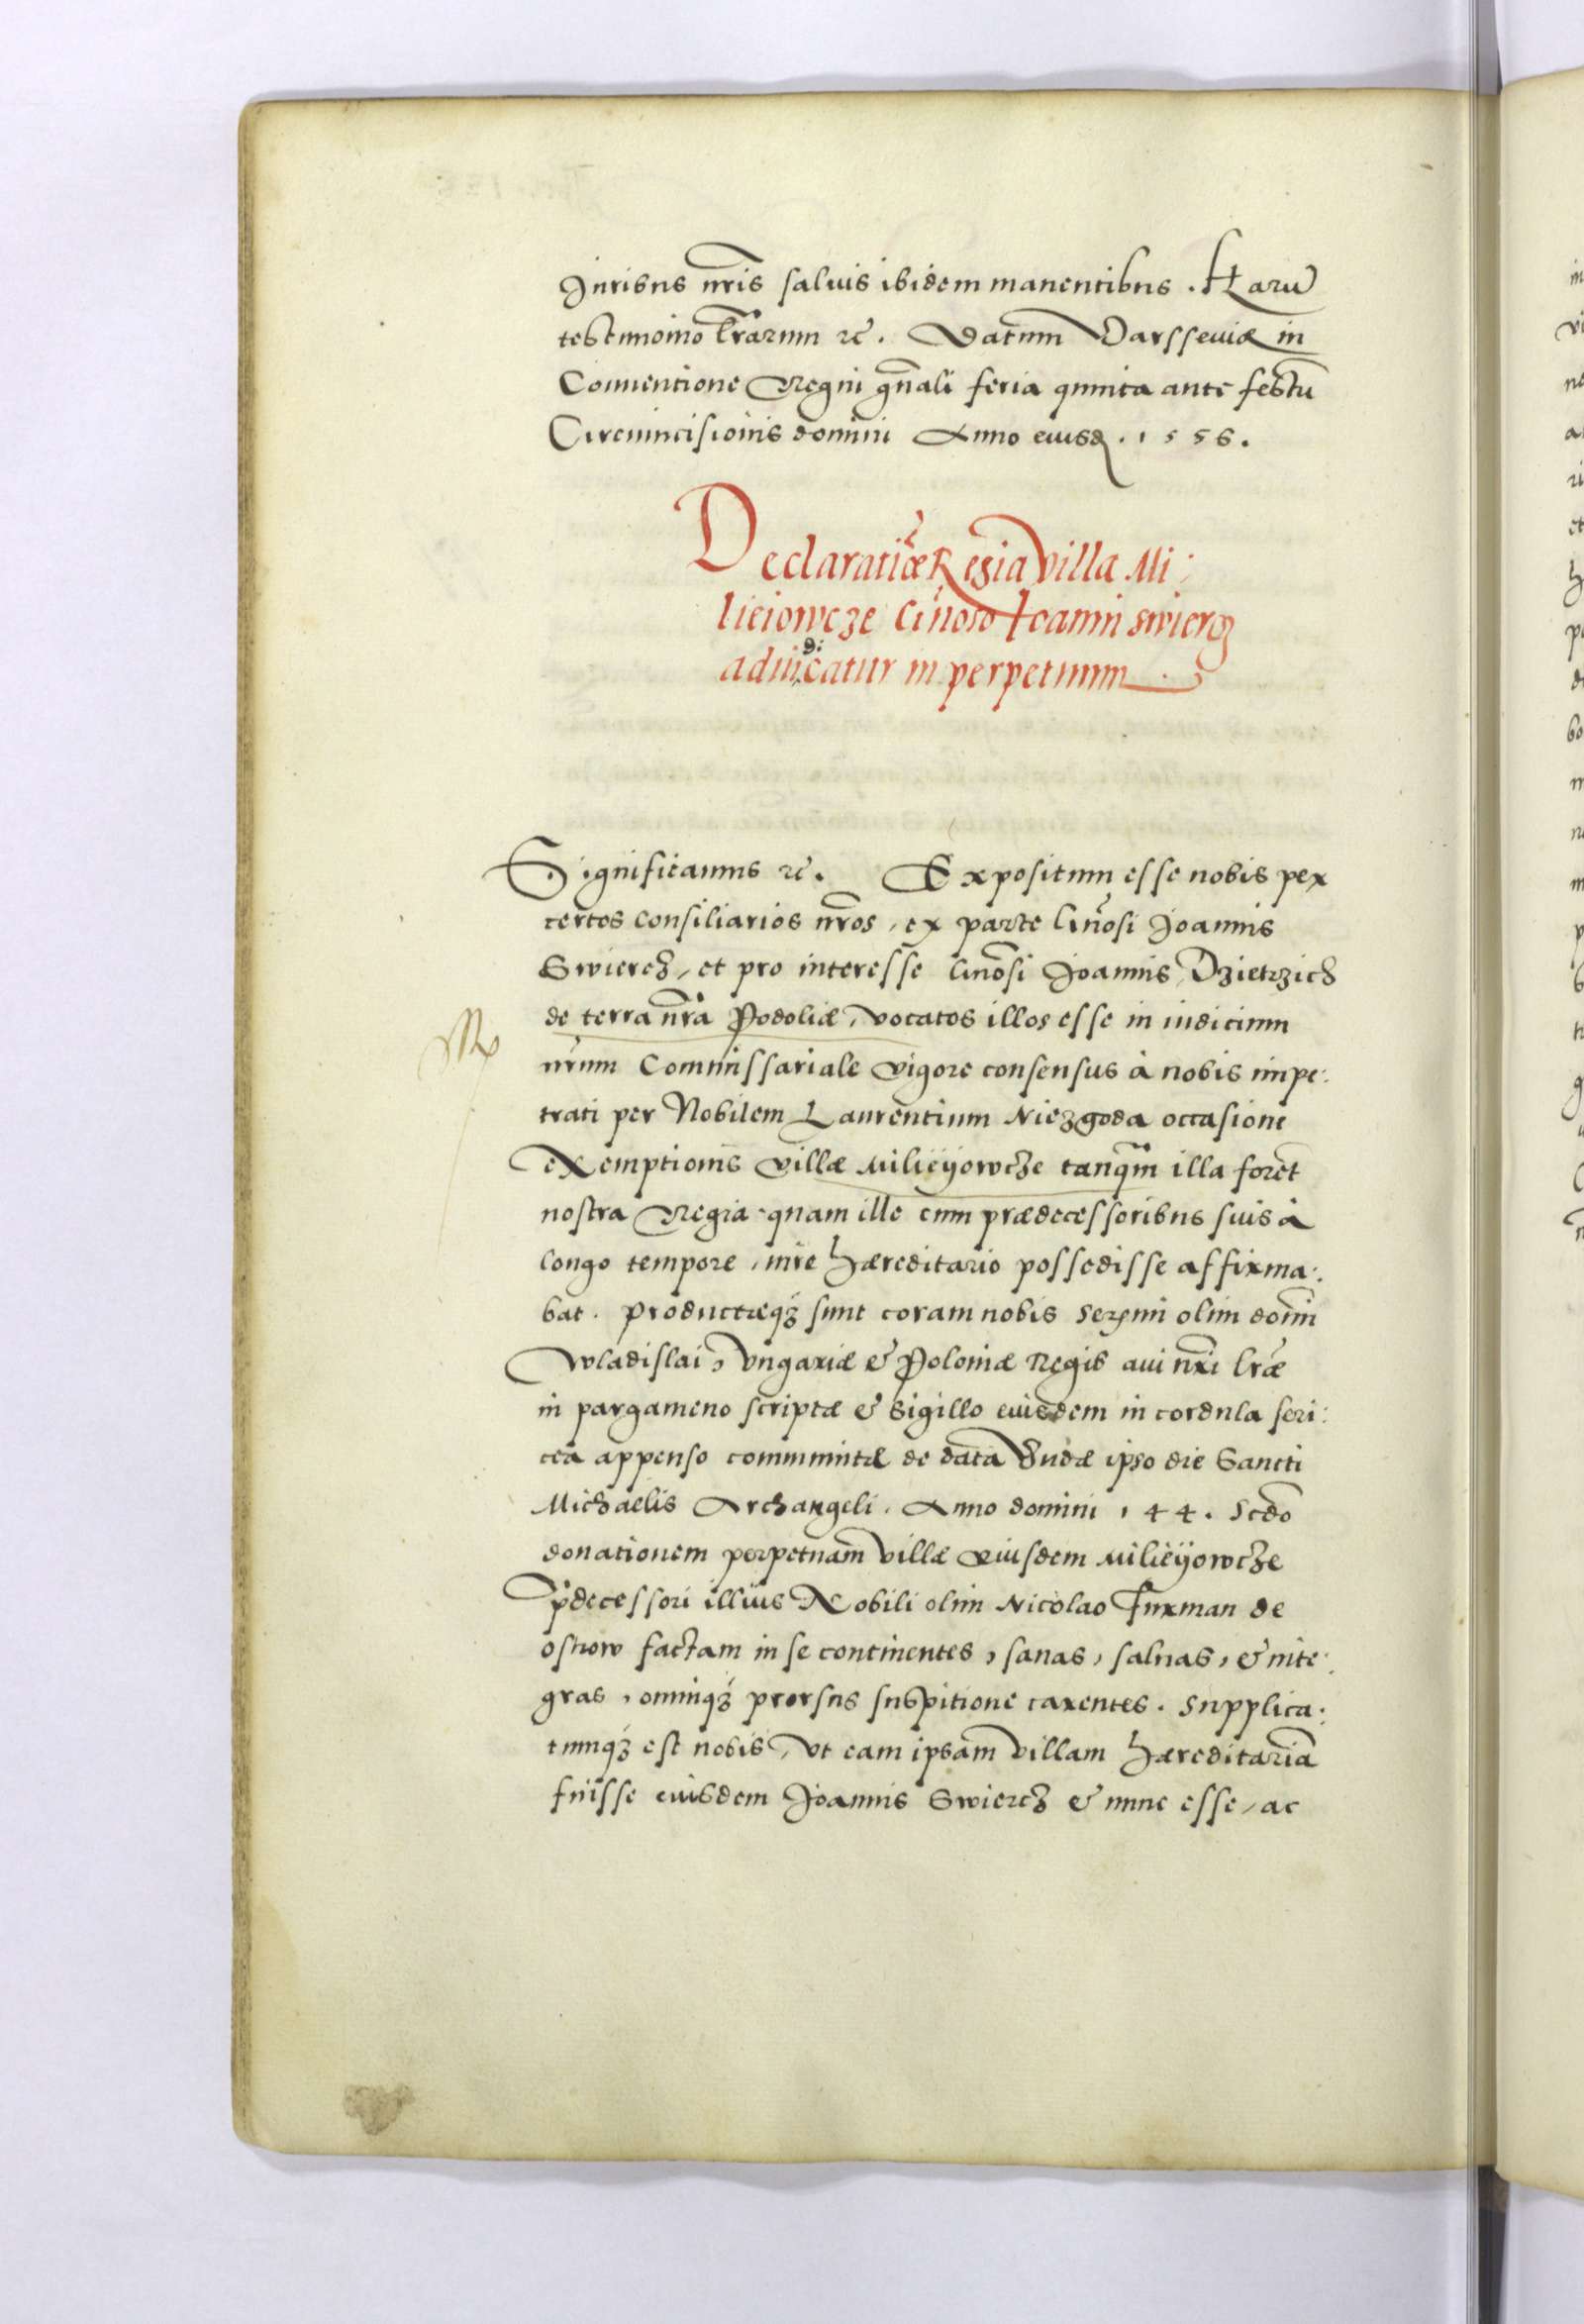 Juribus nr̃is saluis ibidem manentibus. Harũ
testimonio l̃rarum ꝛc̃. Datum Varsseuiæ in
Conuentione Regni gñali feria quinta ante festũ
Circumcisionis domini Anno eiusd. 1556.
Declaratiõe Regia villa Mi:
lieiowcze G̃noso Joanni swiercz
adiudicatur in perpetuum
Significamus ꝛc̃. Expositum esse nobis per
certos consiliarios nr̃os, ex parte G̃nosi Joannis
Swiercz, et pro interesse G̃nosi Joannis Dzietrzich
de terra nr̃a Podoliæ, vocatos illos esse in iudicium
nr̃um Commissariale vigore consensus à nobis impe:
trati per Nobilem Laurentium Niezgoda occasione
exemptionis villæ Miliëÿowcze tanq̃m illa foret
nostra Regia quam ille cum prædecessoribus suis à
longo tempore, iure hæreditario possedisse affirma:
bat. Productæq́ sunt coram nobis Serm̃i olim dom̃i
Wladislai, Vngariæ & Poloniæ Regis aui nr̃i l̃ræ
in pargameno scriptæ & sigillo eiusdem in cordula seri:
cea appenso communitæ de data Budæ ipso die Sancti
Michaelis Archangeli. Anno domini 144. Scdõ
donationem perpetuam villæ eiusdem Milieÿowcze
p̃decessori illius Nobili olim Nicolao Furman de
ostrow factam in se continentes, sanas, saluas, & inte:
gras, omniq́ prorsus suspitione carentes. Supplica:
tumq́ est nobis, vt eam ipsam villam hæreditariã
fuisse eiusdem Joannis Swiercz & nunc esse, ac